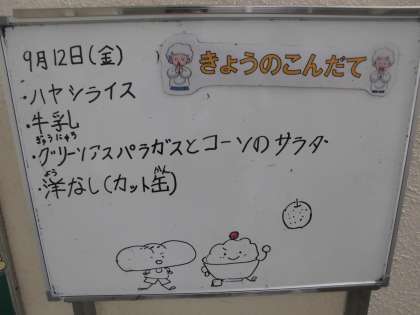 きょうのこんだて
9月12日(金)
・ハヤシライス
・牛乳
ぎゅうにゅう
・グリーンアスパラガスとコーンのサラダ
よう かん
・洋なし(カット缶)